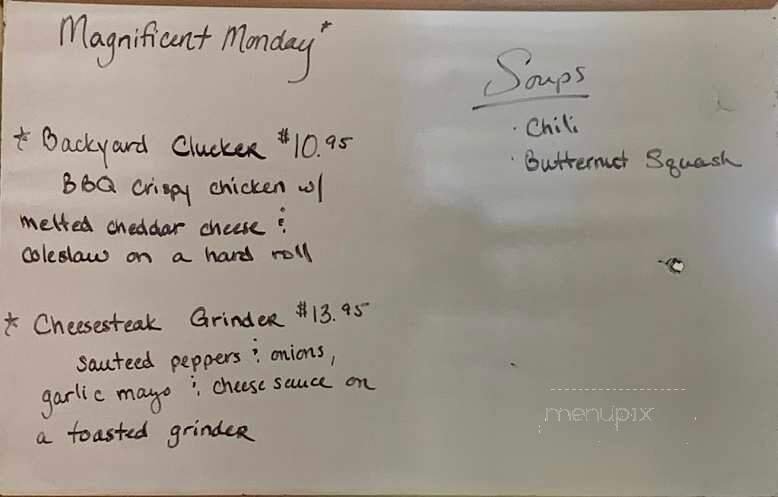 Magnificent Monday*
* Backyard Clucker $10.95
BBQ Crispy chicken w/
melted cheddar cheese &
coleslaw on a hard roll
* Cheesesteak Grinder $13.95
sauteed peppers & onions,
garlic mayo & cheese sauce on
a toasted grinder
Soups
· Chili
· Butternut Squash
menupix